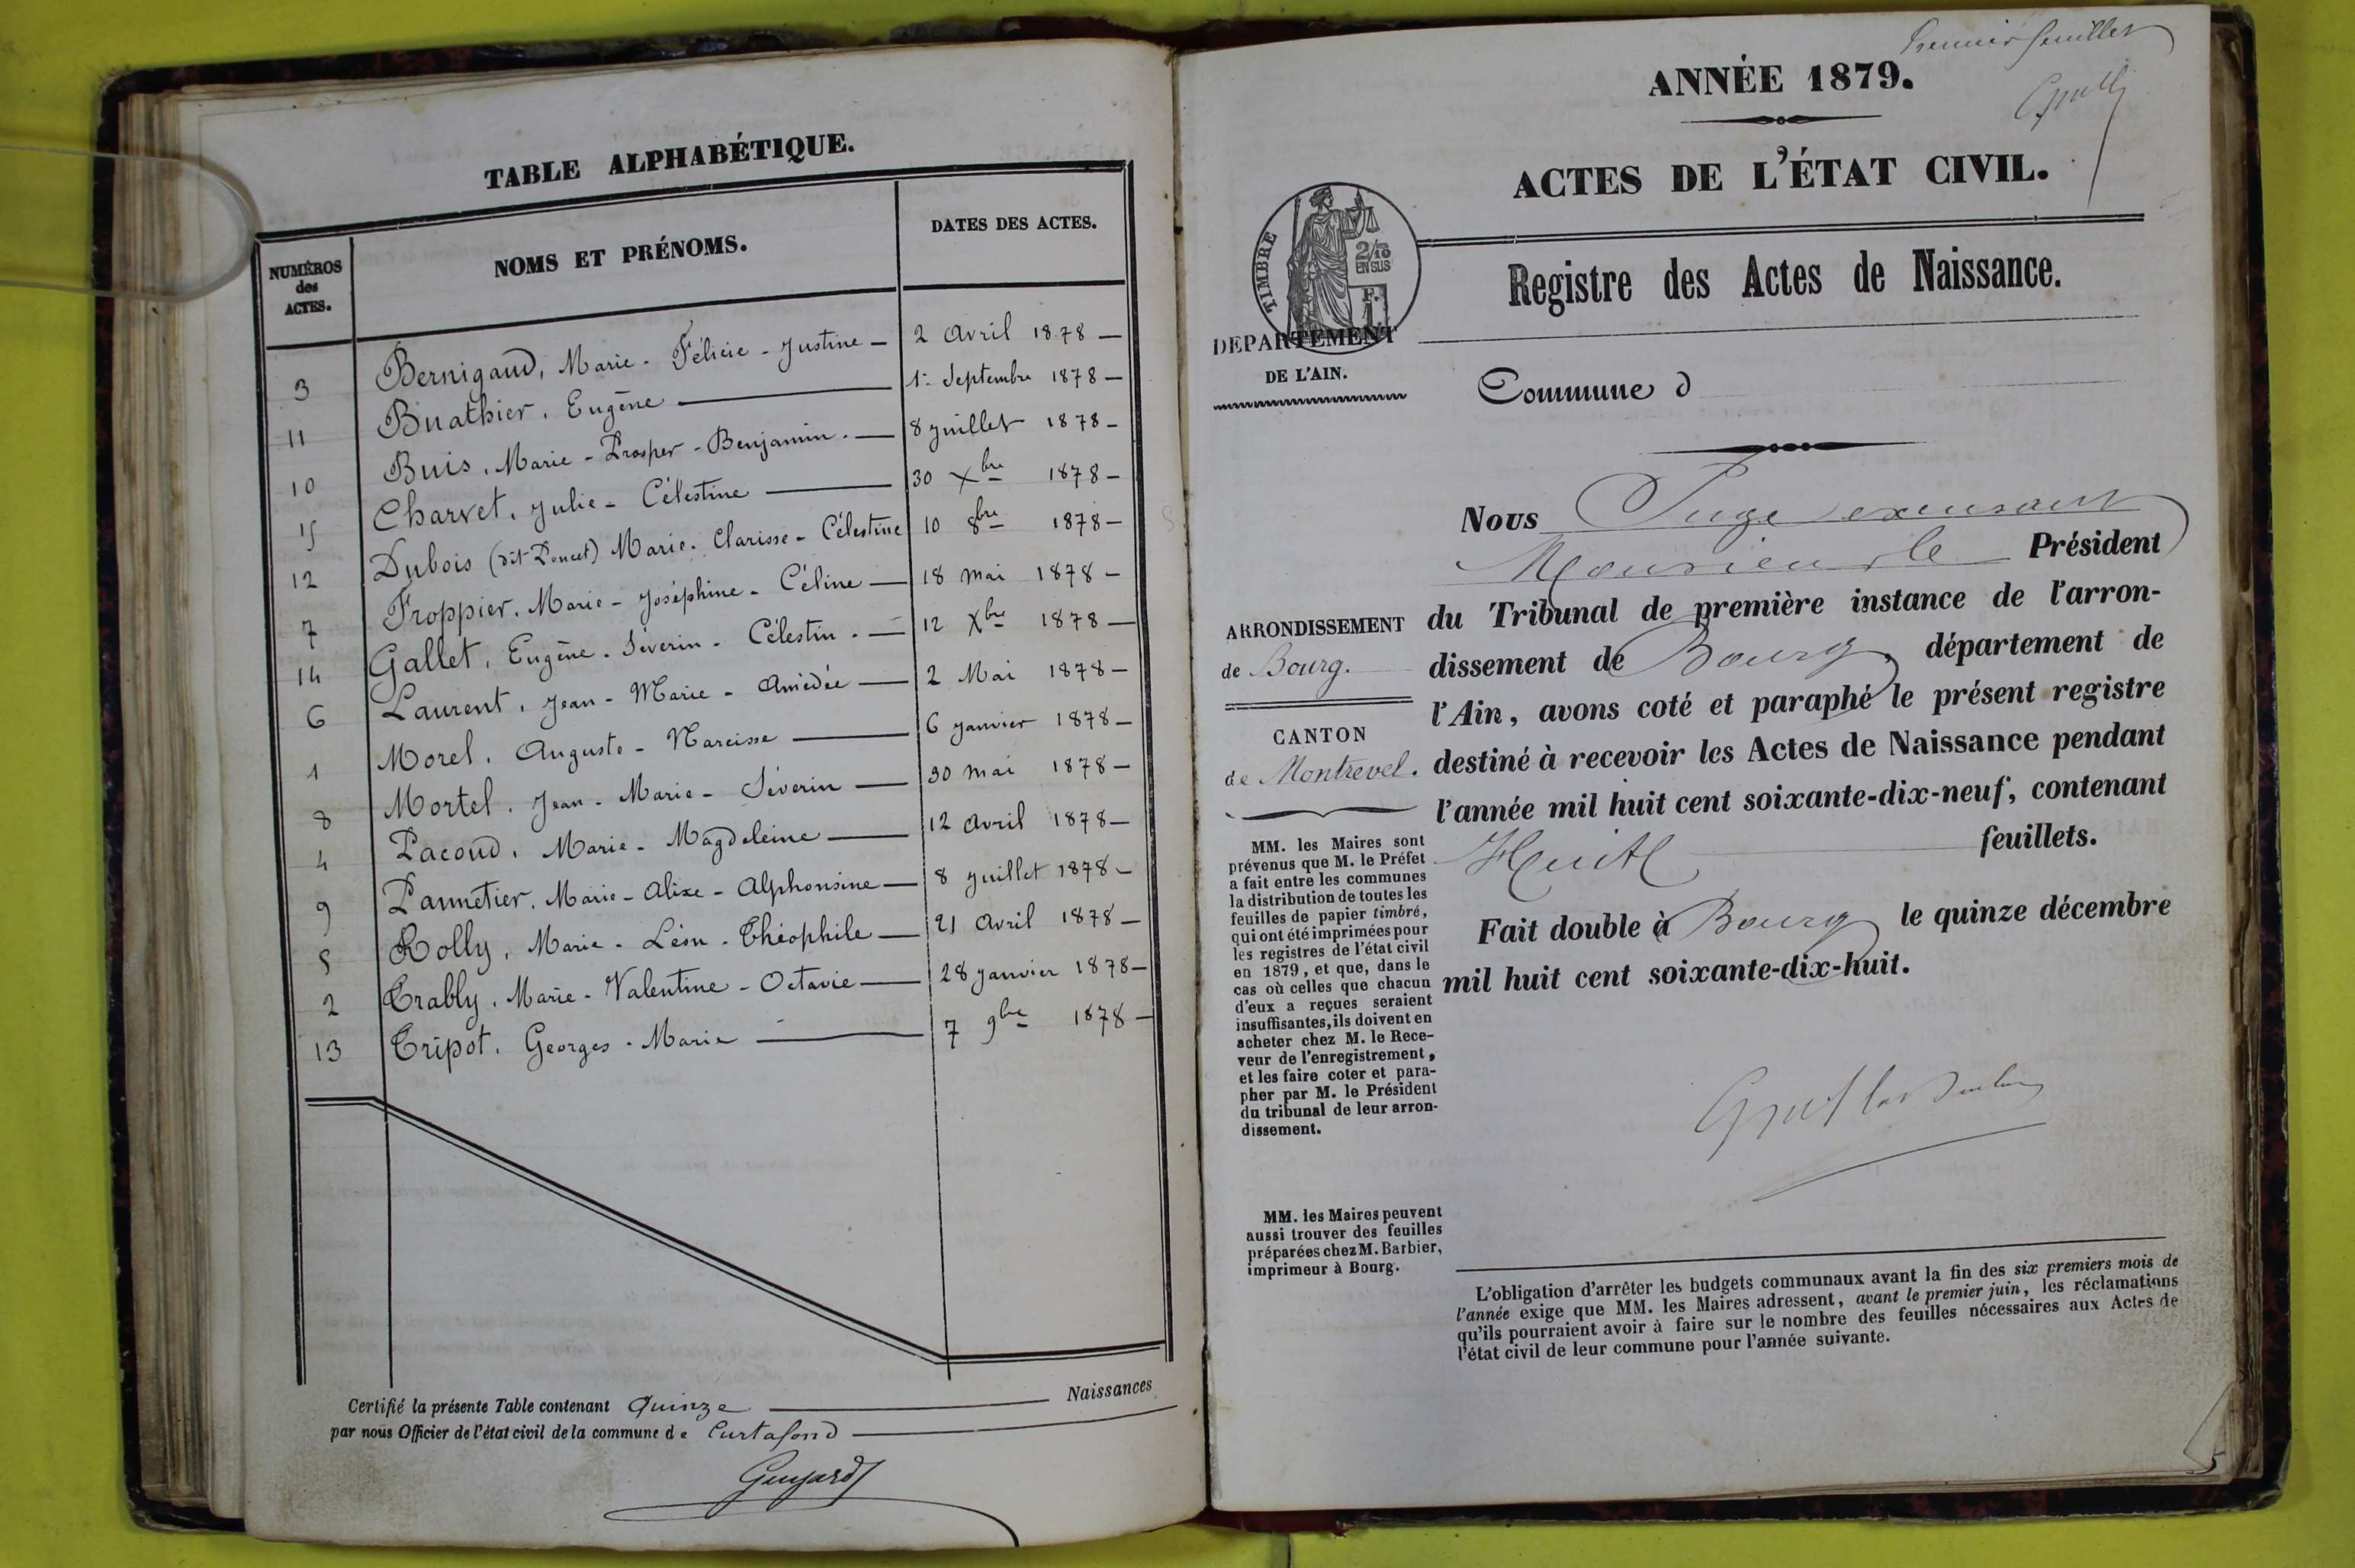 TABLE ALPHABÉTIQUE.
NUMÉROS des ACTES. NOMS ET PRÉNOMS. DATES DES ACTES.
3 Bernigaud, Marie - Félicie - Justine — 2 Avril 1878 —
11 Buathier, Eugène — 1er Septembre 1878 —
10 Buis, Marie - Prosper - Benjamin. — 8 Juillet 1878 —
15 Charvet, Julie - Célestine — 30 Xbre 1878 —
12 Dubois (dit Poncet) Marie. Clarisse - Célestine 10 8bre 1878 —
7 Froppier, Marie - Joséphine - Céline — 18 Mai 1878 —
14 Gallet, Eugène - Séverin - Célestin. — 12 Xbre 1878 —
6 Laurent, Jean - Marie - Amédée — 2 Mai 1878 —
1 Morel, Auguste - Narcisse — 6 Janvier 1878 —
8 Mortel, Jean - Marie - Séverin — 30 Mai 1878 —
4 Pacoud, Marie - Magdeleine — 12 Avril 1878 —
9 Pannetier, Marie - Alixe - Alphonsine — 8 Juillet 1878 —
5 Rolly, Marie - Léon - Théophile — 21 Avril 1878 —
2 Trably, Marie - Valentine - Octavie — 28 Janvier 1878 —
13 Tripot, Georges - Marie — 7 9bre 1878 —
Certifié la présente Table contenant Quinze — Naissances
par nous Officier de l'état civil de la commune de Curtafond —
Guyard
Premier feuillet
ANNÉE 1879.
ACTES DE L'ÉTAT CIVIL.
TIMBRE
2/10 EN SUS
F. 1.
Registre des Actes de Naissance.
DEPARTEMENT
DE L'AIN.
Commune d
Nous Juge excusant
Monsieur le Président
du Tribunal de première instance de l'arron-
dissement de Bourg, département de
l'Ain, avons coté et paraphé le présent registre
destiné à recevoir les Actes de Naissance pendant
l'année mil huit cent soixante-dix-neuf, contenant
Huit feuillets.
Fait double à Bourg le quinze décembre
mil huit cent soixante-dix-huit.
ARRONDISSEMENT
de Bourg.
CANTON
de Montrevel.
MM. les Maires sont
prévenus que M. le Préfet
a fait entre les communes
la distribution de toutes les
feuilles de papier timbré,
qui ont été imprimées pour
les registres de l'état civil
en 1879, et que, dans le
cas où celles que chacun
d'eux a reçues seraient
insuffisantes, ils doivent en
acheter chez M. le Rece-
veur de l'enregistrement,
et les faire coter et para-
pher par M. le Président
du tribunal de leur arron-
dissement.
MM. les Maires peuvent
aussi trouver des feuilles
préparées chez M. Barbier,
imprimeur à Bourg.
L'obligation d'arrêter les budgets communaux avant la fin des six premiers mois de
l'année exige que MM. les Maires adressent, avant le premier juin, les réclamations
qu'ils pourraient avoir à faire sur le nombre des feuilles nécessaires aux Actes de
l'état civil de leur commune pour l'année suivante.